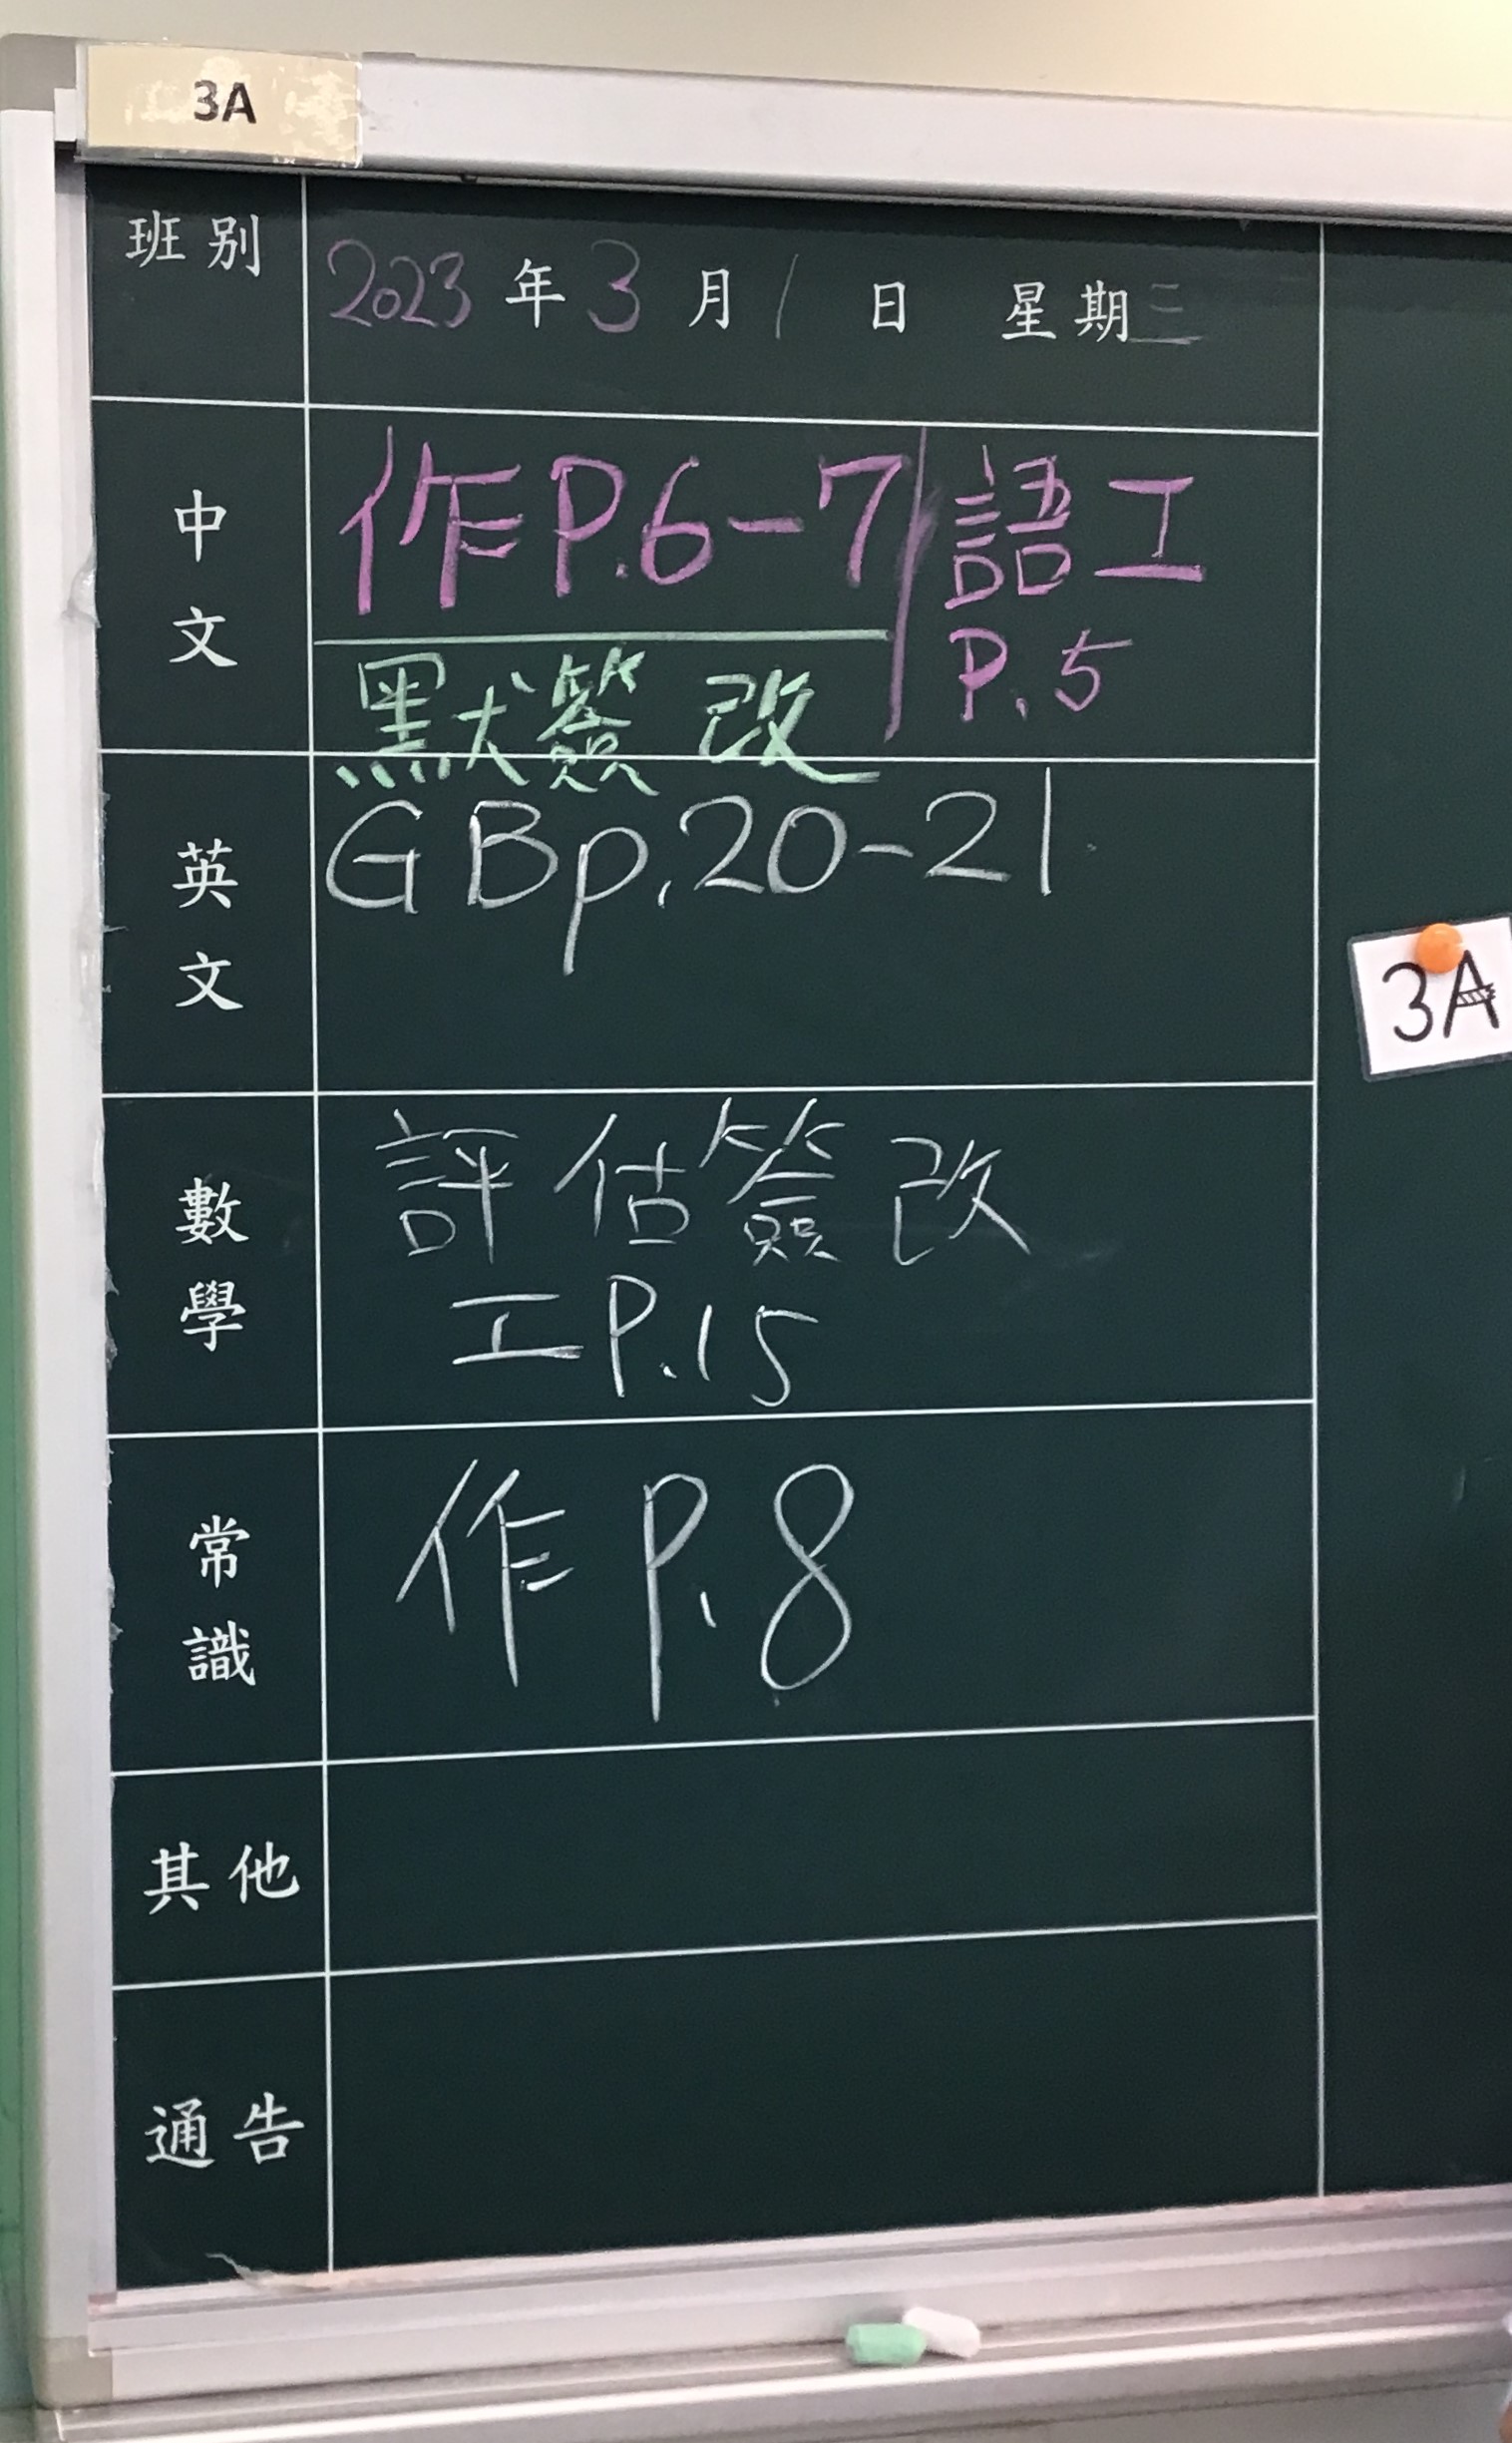 3A
班别 2023年3月1日 星期三
中文 作P.6-7 語工
P.5
默簽改
英文 GBp.20-21
數學 評估簽改
工P.15
常識 作P.8
其他
通告
3A